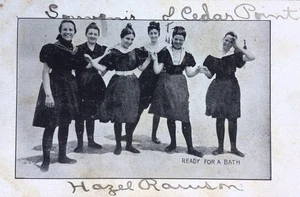 Souvenir of Cedar Point
READY FOR A BATH
Hazel Rawson